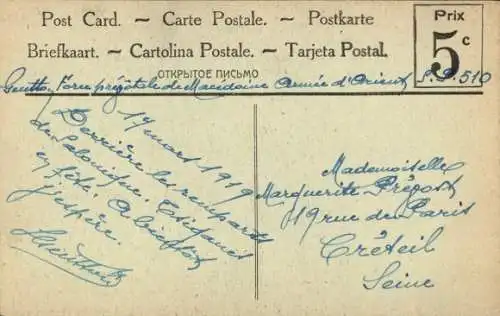 Post Card. ~ Carte Postale. ~ Postkarte
Briefkaart. ~ Cartolina Postale. ~ Tarjeta Postal.
ОТКРЫТОЕ ПИСЬМО
Prix
5c
de Macédoine Armée d'Orient S.P. 510
17 mars 1919
Derrière les remparts
de Salonique. Tsiganes
en fête. A bientôt
j'espère.
Mademoiselle
Marguerite Prévost
19 rue de Paris
Créteil
Seine